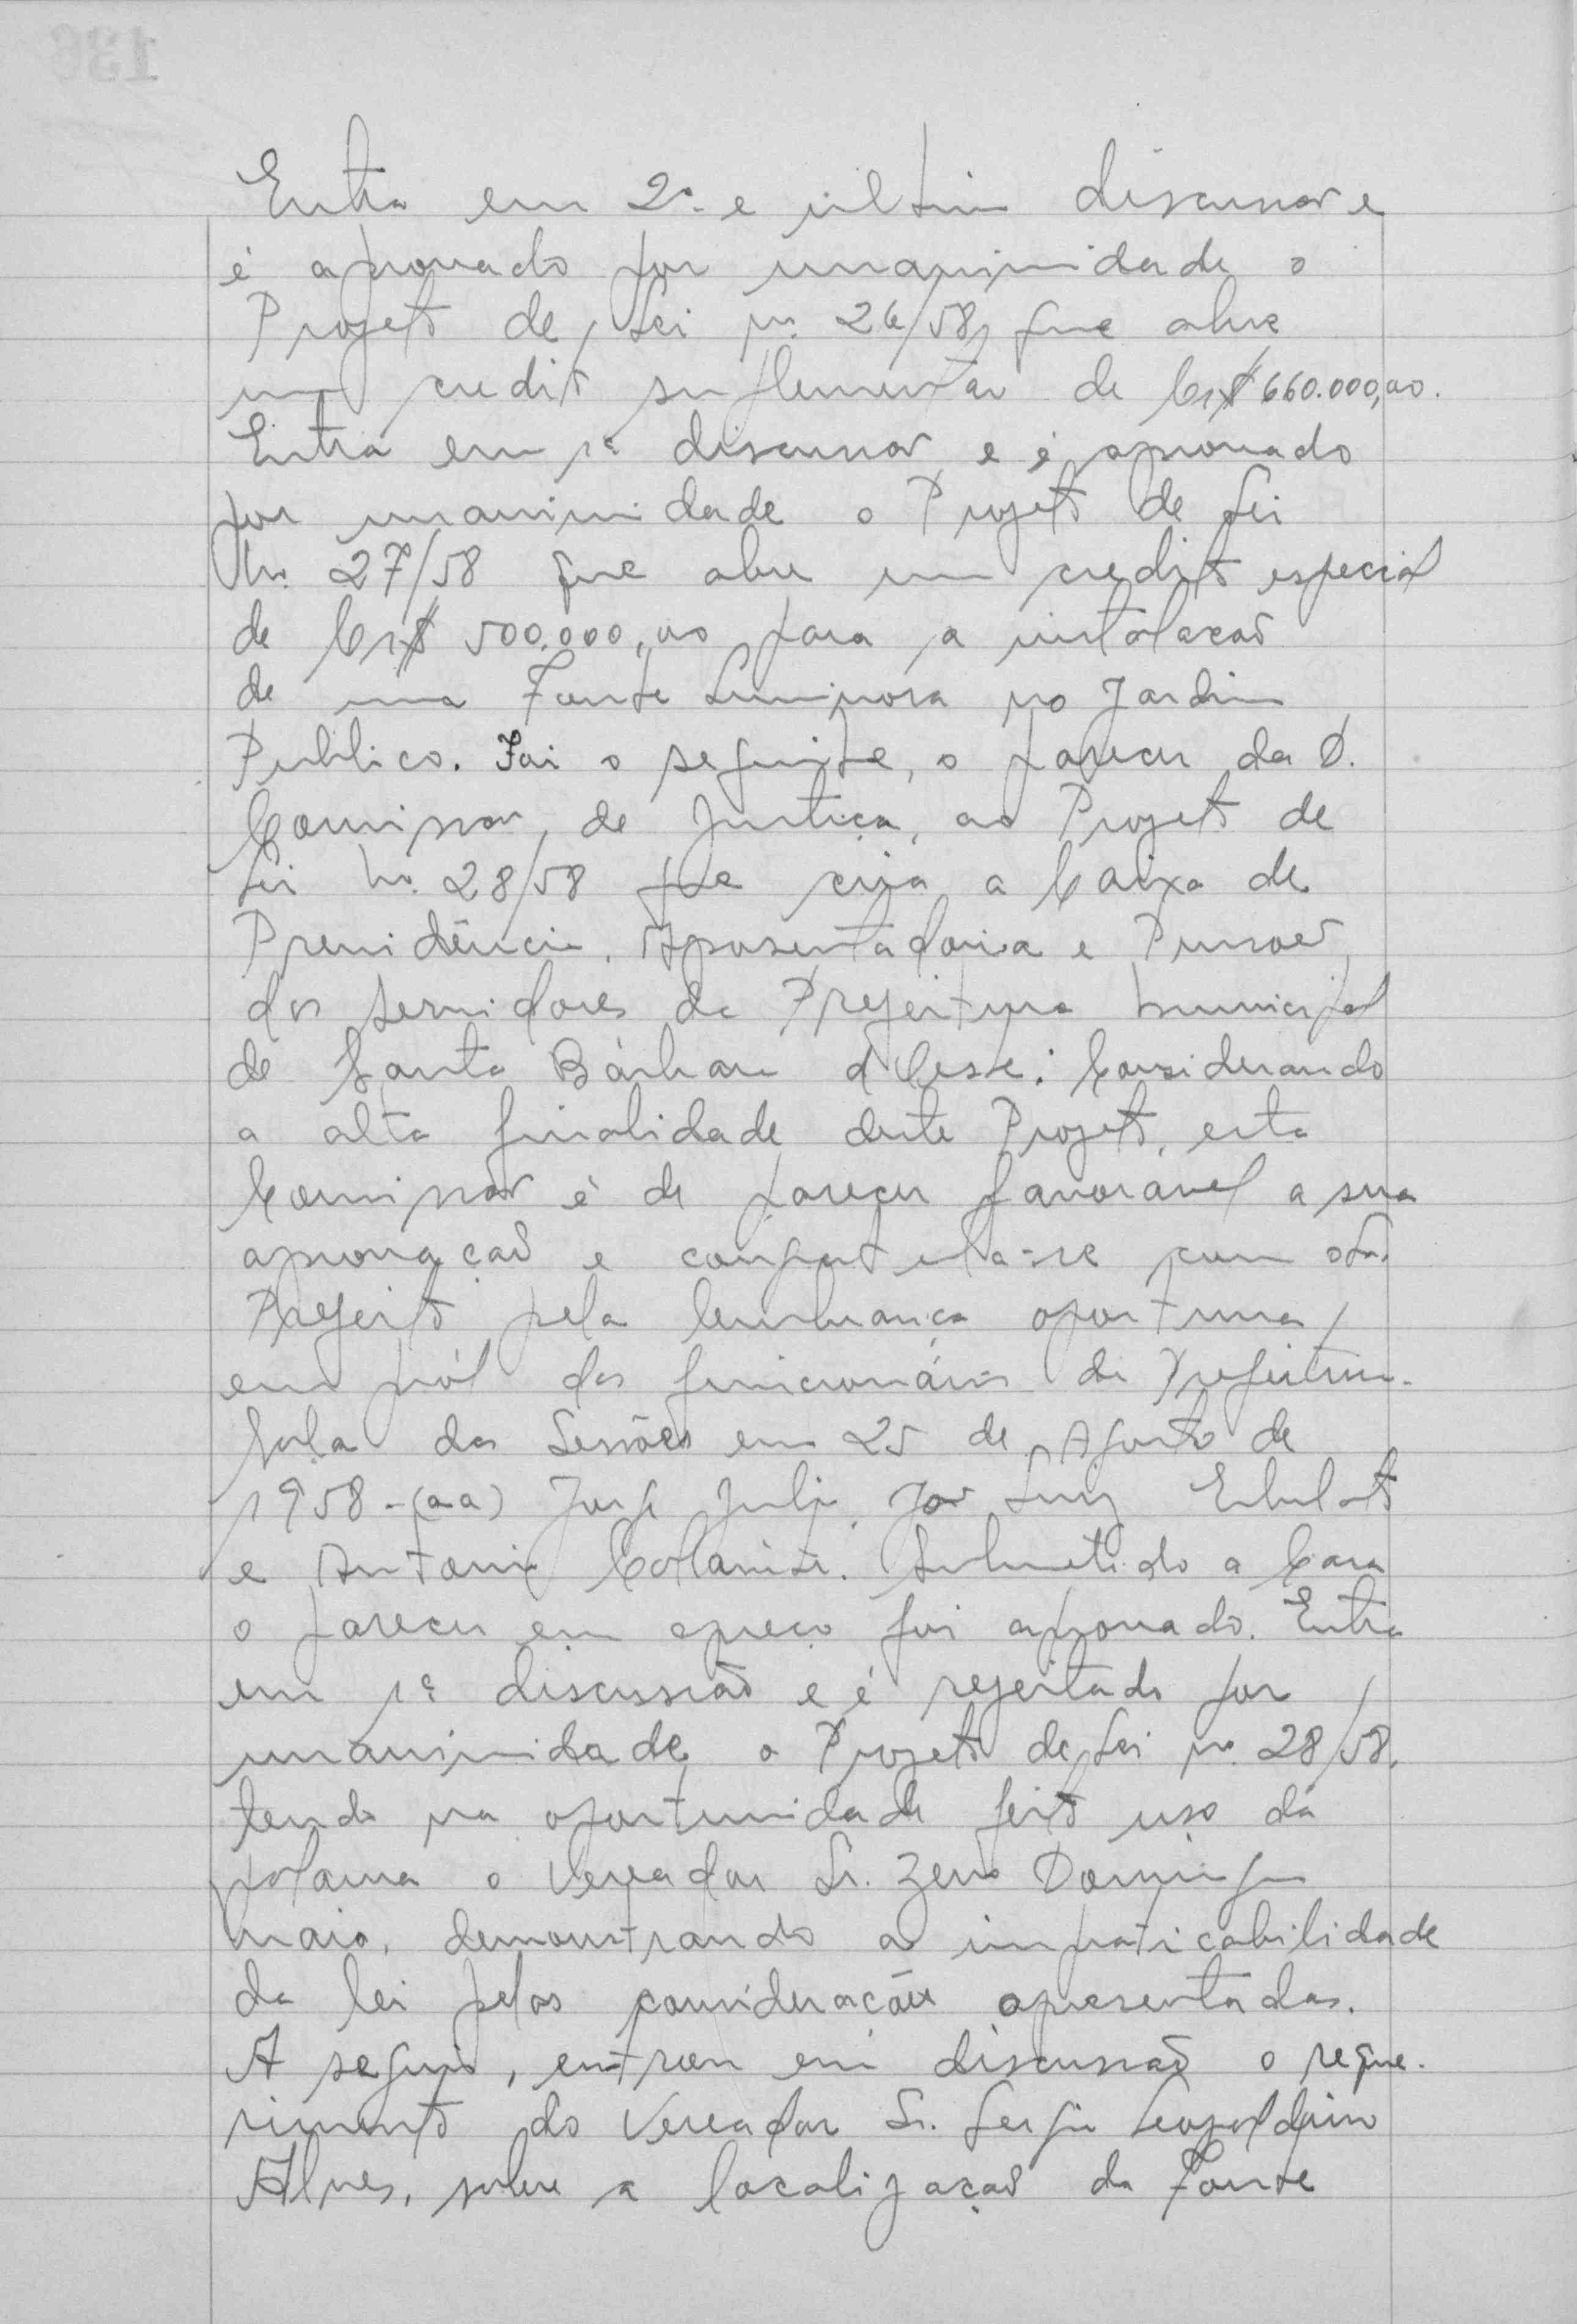 Entra em 2ª e ultima discussão e
é aprovado por unanimidade o
Projeto de Lei no. 26/58, que abre
um credito suplementar de Cr$ 660.000,00.
Entra em 1ª discussão e é aprovado
por unanimidade o Projeto de Lei
No. 27/58 que abre um credito especial
de Cr$ 500.000,00 para a instalação
de uma Fonte Luminosa no Jardim
Publico. Foi o seguinte, o parecer da D.
Comissão, de Justiça, ao Projeto de
Lei No. 28/58 que cria a Caixa de
Previdência, Aposentadoria e Pensões
dos servidores da Prefeitura Municipal
de Santa Bárbara d'Oeste: Considerando
a alta finalidade deste Projeto, esta
Comissão é de parecer favoravel a sua
aprovação e congratula-se com o Sr.
Prefeito pela lembrança oportuna,
em pról dos funcionários da Prefeitura.
Sala das Sessões em 25 de Agosto de
1958 - (aa) Jorge Julio, João Luiz
e Antonio. Submetido a Casa
o parecer em apreço foi aprovado. Entra
em 1ª discussão e é rejeitado por
unanimidade, o Projeto de Lei no. 28/58,
tendo na oportunidade feito uso da
palavra o Vereador Sr. Zeno Domingos
Maia, demonstrando a impraticabilidade
da lei pelas considerações apresentadas.
A seguir, entrou em discussão o reque-
rimento do Vereador Sr. Sergio Leopoldino
Alves, sobre a localização da Fonte
136